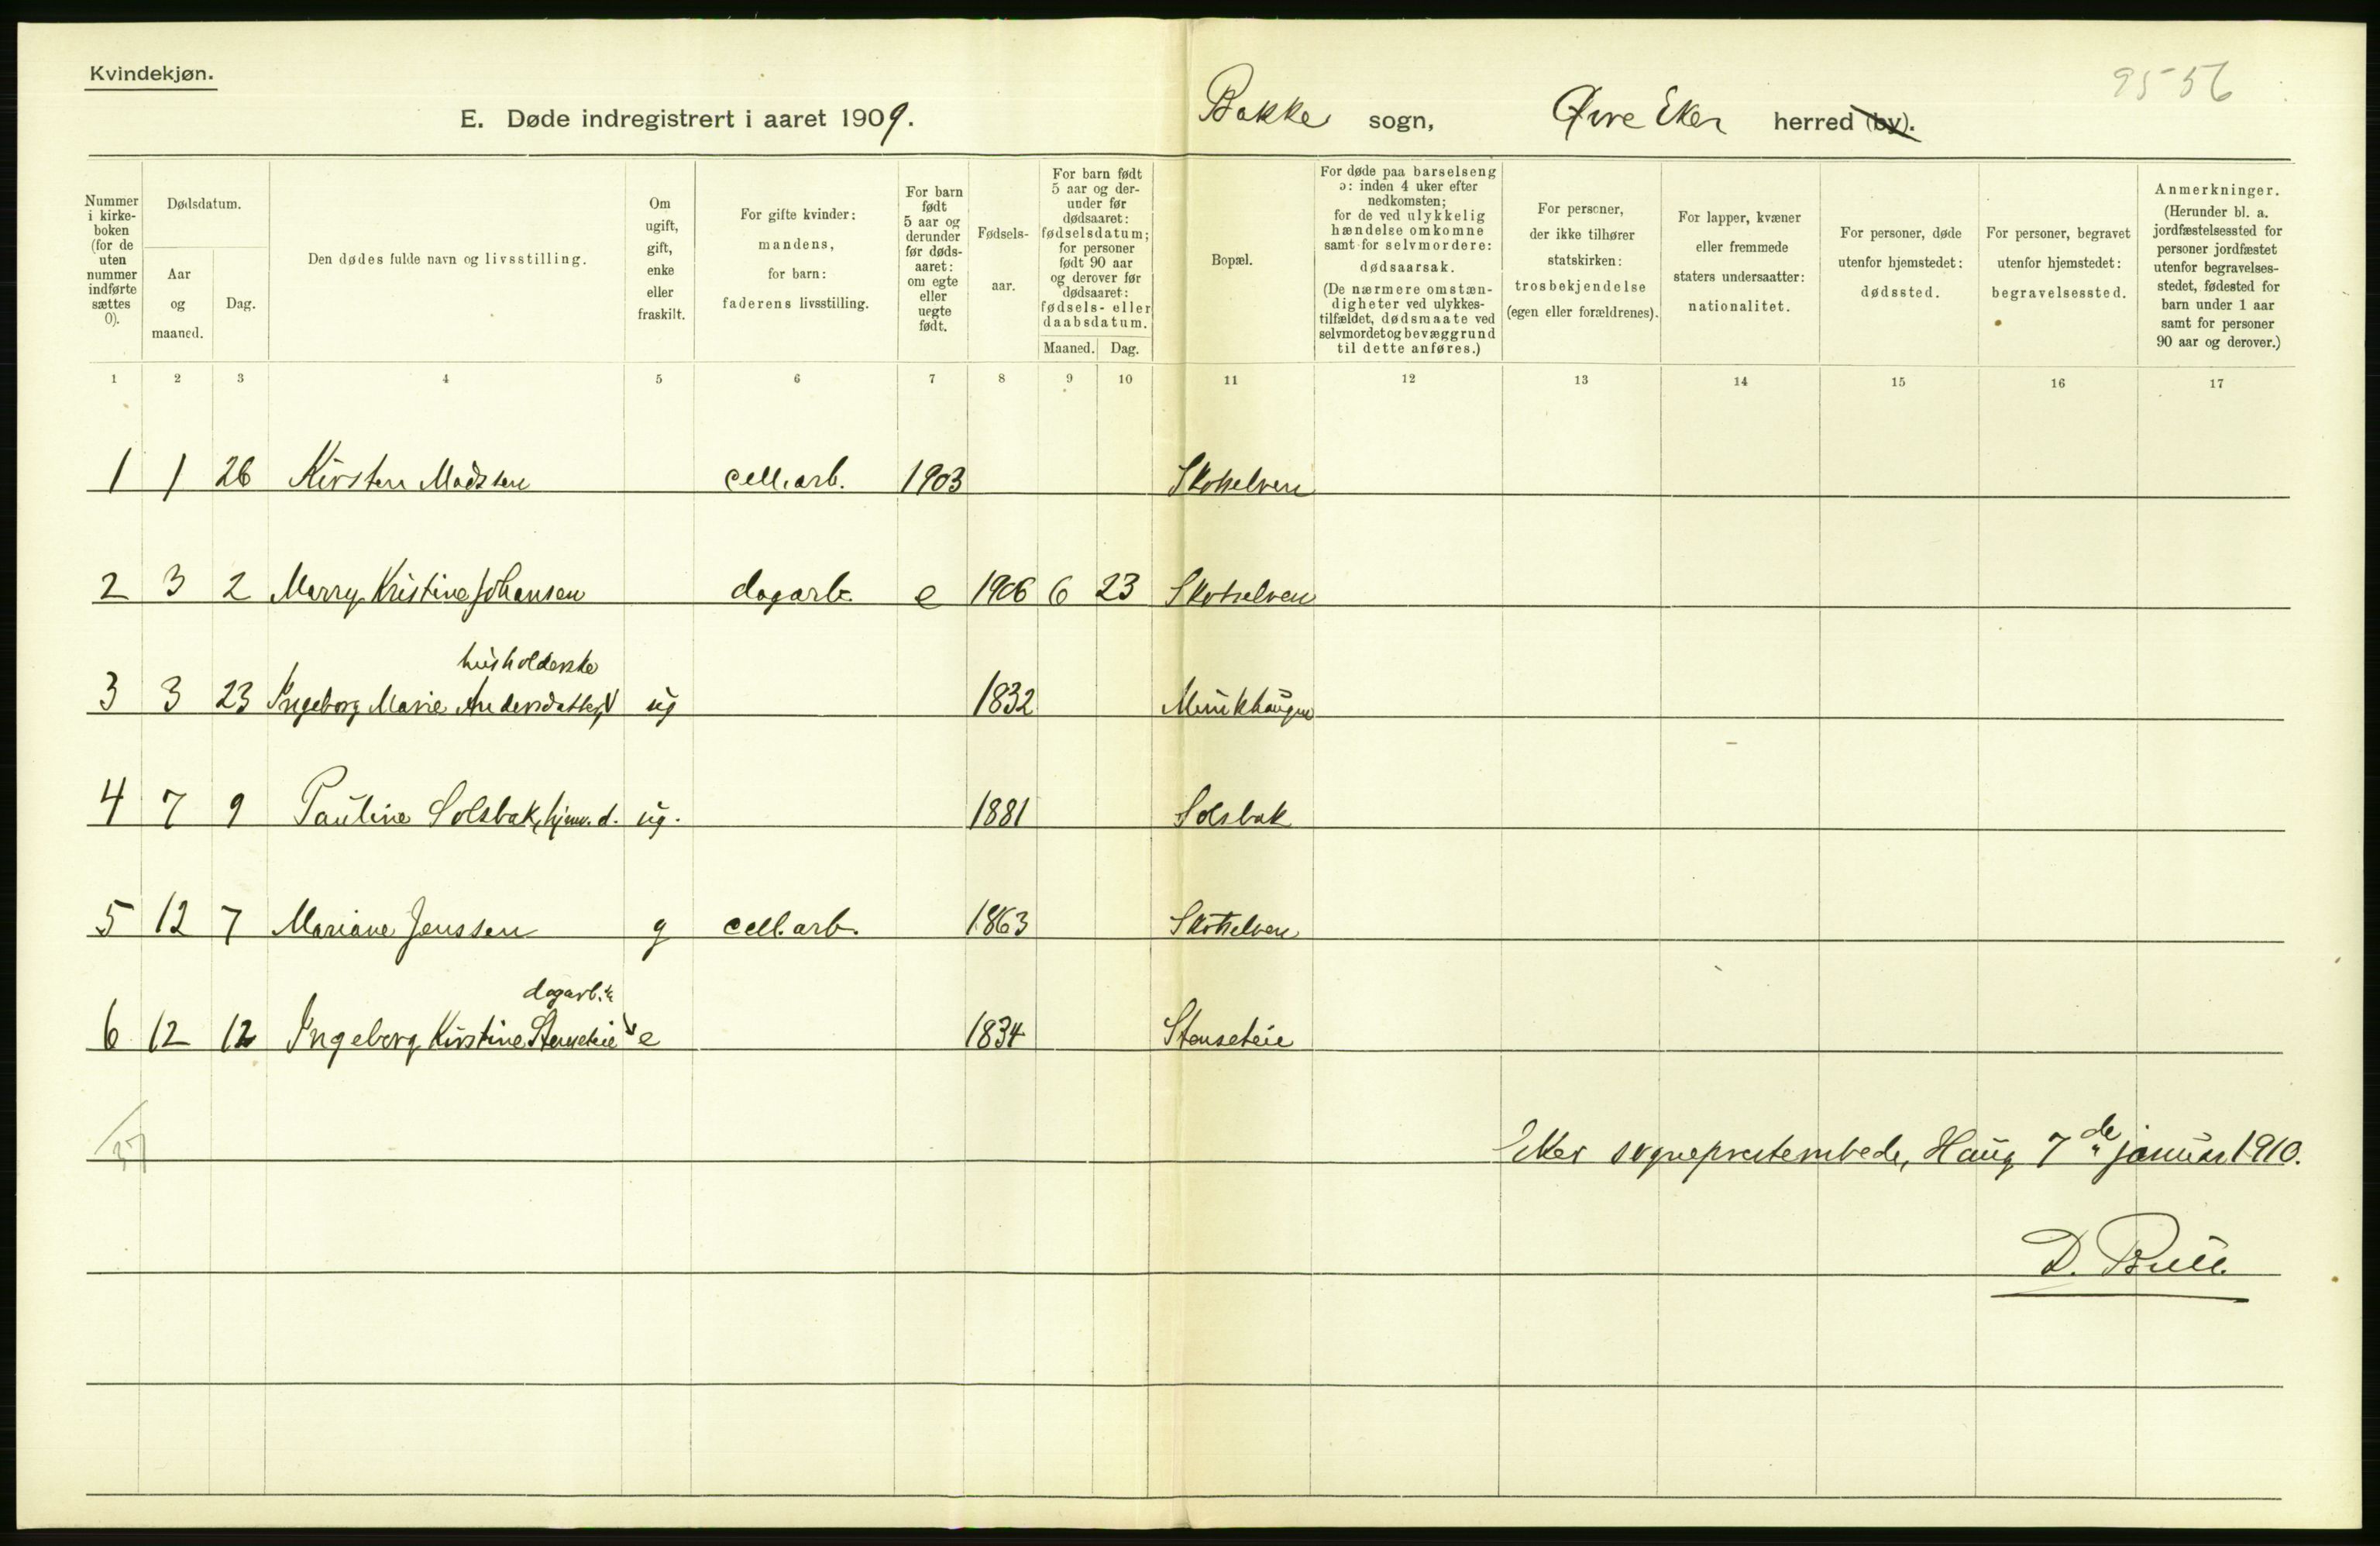 Kvindekjøn.
9556
E. Døde indregistrert i aaret 1909. Bakke sogn, Øvre Eker herred (by).
Nummer i kirke-boken (for de uten nummer indførte sættes 0).
Dødsdatum.
Aar og maaned.
Dag.
Den dødes fulde navn og livsstilling.
Om ugift, gift, enke eller fraskilt.
For gifte kvinder: mandens, for barn: faderens livsstilling.
For barn født 5 aar og derunder før døds-aaret: om egte eller uegte født.
Fødsels-aar.
For barn født 5 aar og der-under før dødsaaret: fødselsdatum; for personer født 90 aar og derover før dødsaaret: fødsels- eller daabsdatum.
Maaned. Dag.
Bopæl.
For døde paa barselseng ɔ: inden 4 uker efter nedkomsten; for de ved ulykkelig hændelse omkomne samt for selvmordere: dødsaarsak. (De nærmere omstæn-digheter ved ulykkes-tilfældet, dødsmaate ved selvmordet og bevæggrund til dette anføres.)
For personer, der ikke tilhører statskirken: trosbekjendelse (egen eller forældrenes).
For lapper, kvæner eller fremmede staters undersaatter: nationalitet.
For personer, døde utenfor hjemstedet: dødssted.
For personer, begravet utenfor hjemstedet: begravelsessted.
Anmerkninger. (Herunder bl. a. jordfæstelsessted for personer jordfæstet utenfor begravelses-stedet, fødested for barn under 1 aar samt for personer 90 aar og derover.)
1 2 3 4 5 6 7 8 9 10 11 12 13 14 15 16 17
1 1 26 Kirsten Madssen cell.arb. 1903 Skotselven
2 3 2 Marry Kristine Johansen dagarb. e 1906 6 23 Skotselven
husholderske
3 3 23 Ingeborg Marie Andersdatter, ug 1832 Munkhaugen
4 7 9 Pauline Solsbak, hjemv. d. ug. 1881 Solsbak
5 12 7 Mariane Jenssen g cell.arb. 1863 Skotselven
dagarb.
6 12 12 Ingeborg Kirstine Stenseteie e 1834 Stenseteie
37
Eker sogneprestembede, Haug 7de januar 1910.
D. Bull.